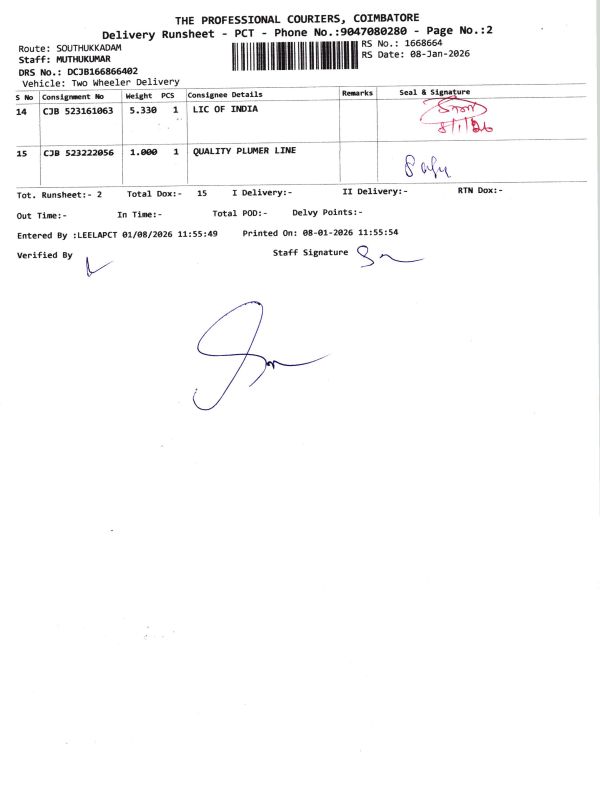 THE PROFESSIONAL COURIERS, COIMBATORE
Delivery Runsheet - PCT - Phone No.:9047080280 - Page No.:2
Route: SOUTHUKKADAM RS No.: 1668664
Staff: MUTHUKUMAR RS Date: 08-Jan-2026
DRS No.: DCJB166866402
Vehicle: Two Wheeler Delivery
S No Consignment No Weight PCS Consignee Details Remarks Seal & Signature
14 CJB 523161063 5.330 1 LIC OF INDIA
8/1/26
15 CJB 523222056 1.000 1 QUALITY PLUMER LINE
Tot. Runsheet:- 2 Total Dox:- 15 I Delivery:- II Delivery:- RTN Dox:-
Out Time:- In Time:- Total POD:- Delvy Points:-
Entered By :LEELAPCT 01/08/2026 11:55:49 Printed On: 08-01-2026 11:55:54
Verified By Staff Signature